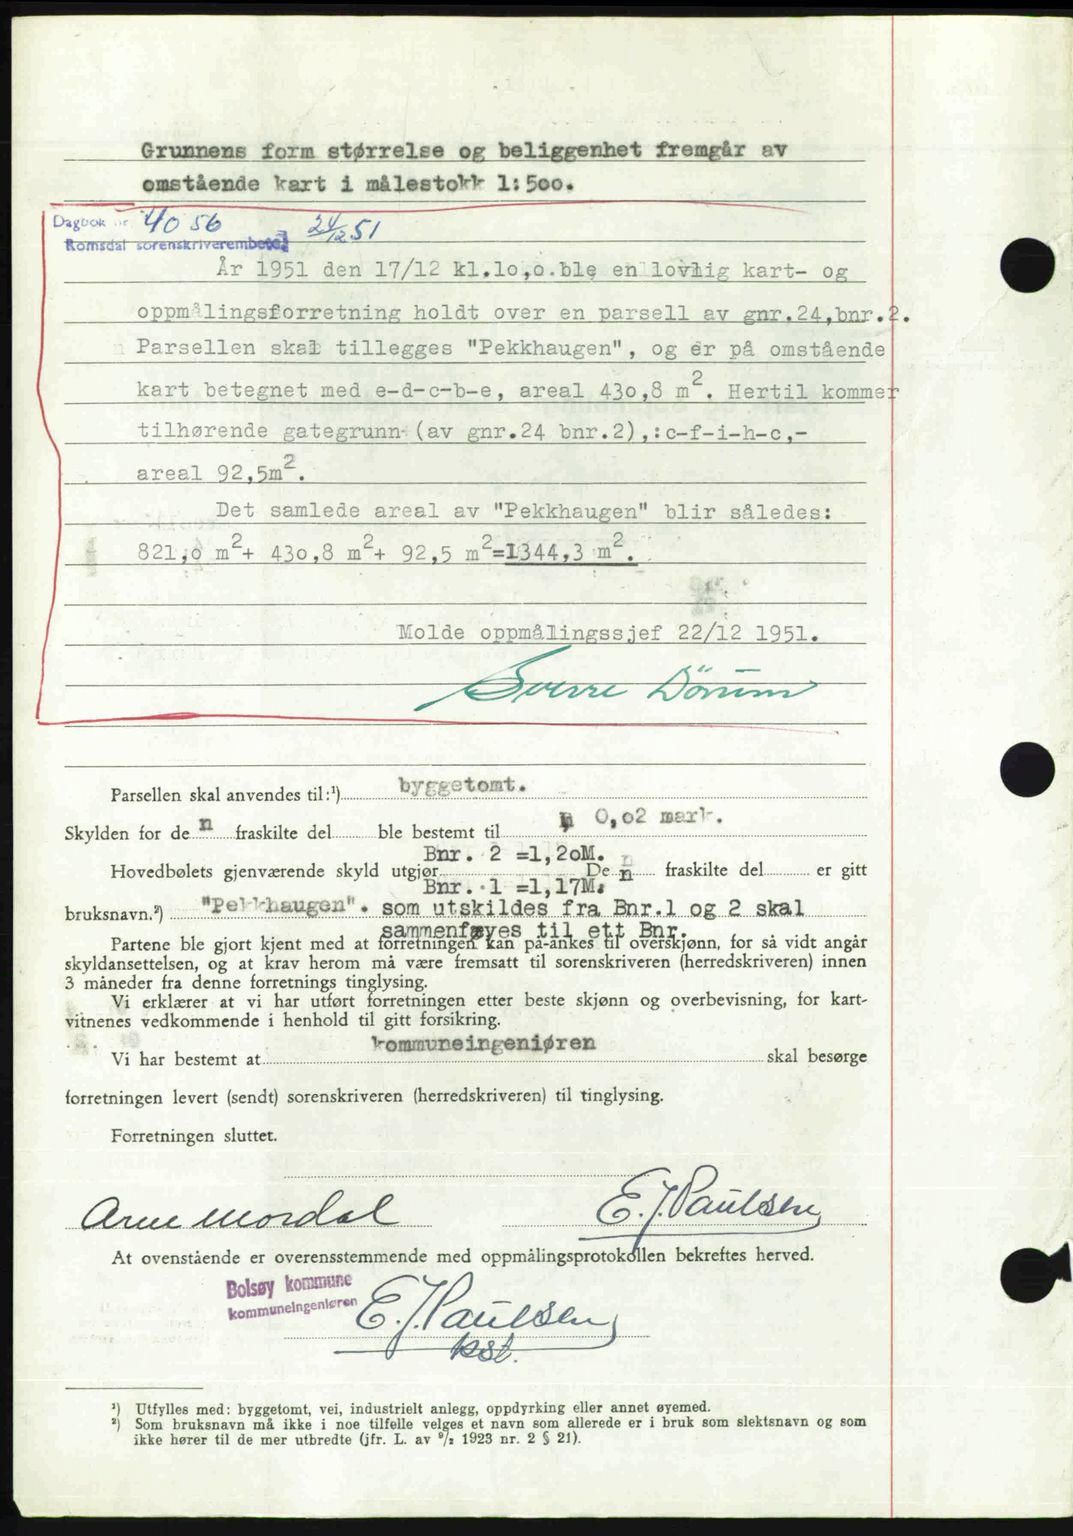 Grunnens form størrelse og beliggenhet fremgår av
omstående kart i målestokk 1:5oo.
Dagbok nr. 4056 24/12 51
Romsdal sorenskriverembete
År 1951 den 17/12 kl.1o,o.ble en lovlig kart- og
oppmålingsforretning holdt over en parsell av gnr.24,bnr.2.
Parsellen skal tillegges "Pekkhaugen", og er på omstående
kart betegnet med e-d-c-b-e, areal 43o,8 m². Hertil kommer
tilhørende gategrunn (av gnr.24 bnr.2),:c-f-i-h-c,-
areal 92,5m².
Det samlede areal av "Pekkhaugen" blir således:
821,o m²+ 43o,8 m²+ 92,5 m²=1344,3 m².
Molde oppmålingssjef 22/12 1951.
Sverre Dörum
Parsellen skal anvendes til:¹) byggetomt.
Skylden for den fraskilte del ble bestemt til 0,o2 mark.
Bnr. 2 =1,2oM.
Hovedbølets gjenværende skyld utgjør Den fraskilte del er gitt
Bnr. 1 =1,17M.
bruksnavn.²) "Pekkhaugen". som utskildes fra Bnr.1 og 2 skal
sammenføyes til ett Bnr.
Partene ble gjort kjent med at forretningen kan på-ankes til overskjønn, for så vidt angår
skyldansettelsen, og at krav herom må være fremsatt til sorenskriveren (herredskriveren) innen
3 måneder fra denne forretnings tinglysing.
Vi erklærer at vi har utført forretningen etter beste skjønn og overbevisning, for kart-
vitnenes vedkommende i henhold til gitt forsikring.
Vi har bestemt at kommuneingeniøren skal besørge
forretningen levert (sendt) sorenskriveren (herredskriveren) til tinglysing.
Forretningen sluttet.
Arne Mordal E. J. Paulsen
At ovenstående er overensstemmende med oppmålingsprotokollen bekreftes herved.
Bolsøy kommune
kommuneingeniøren E. J. Paulsen
kst.
¹) Utfylles med: byggetomt, vei, industrielt anlegg, oppdyrking eller annet øyemed.
²) Som bruksnavn må ikke i noe tilfelle velges et navn som allerede er i bruk som slektsnavn og som
ikke hører til de mer utbredte (jfr. L. av ⁹/₂ 1923 nr. 2 § 21).